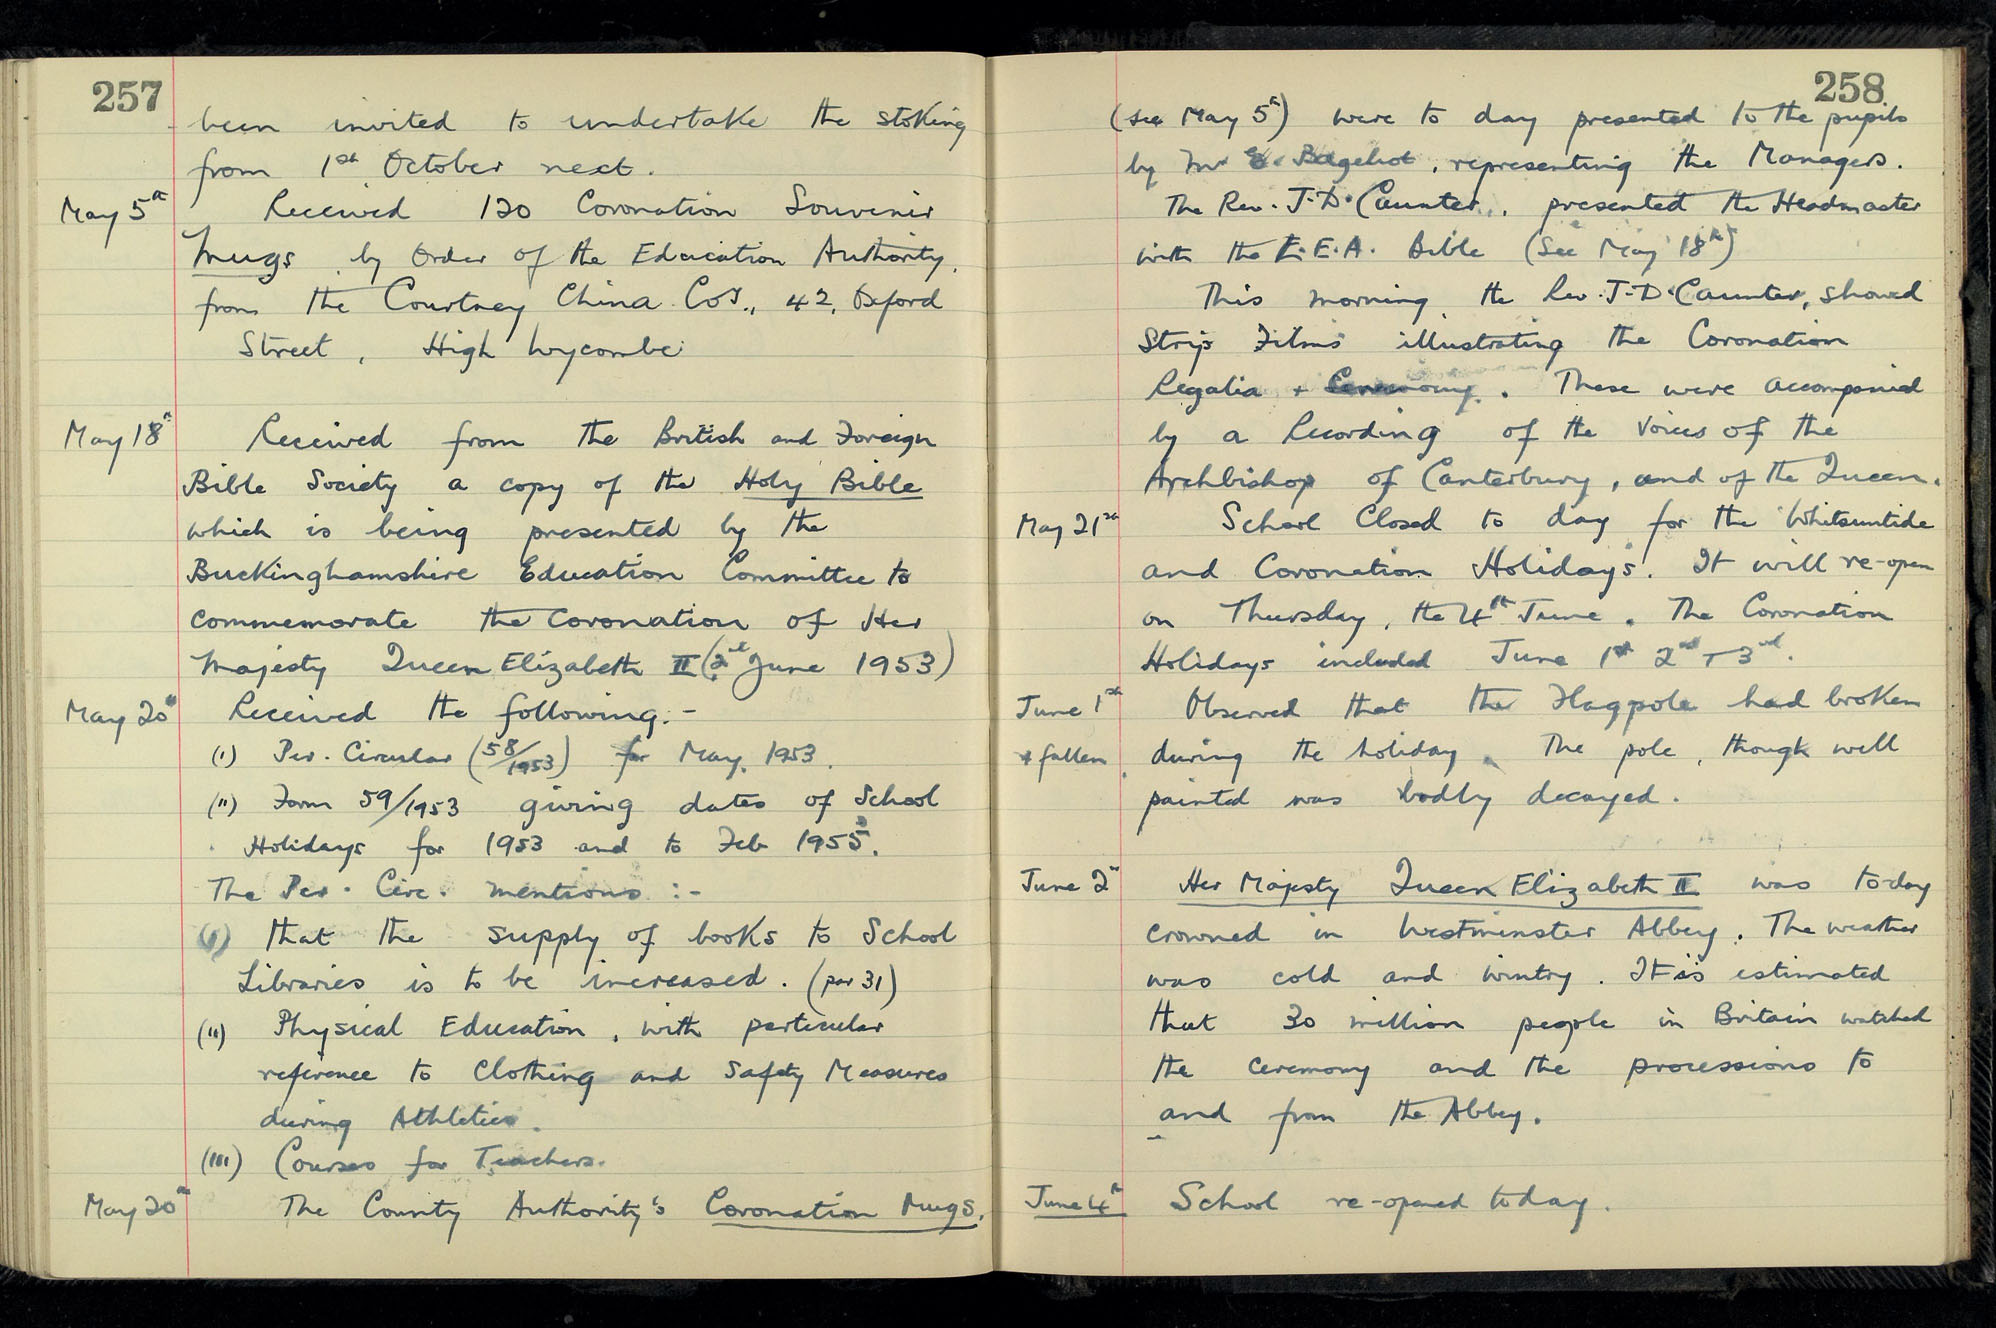 257
been invited to undertake the stoking
from 1st October next.
May 5th Received 120 Coronation Souvenir
Mugs by Order of the Education Authority,
from the Courtney China Coy., 42, Oxford
Street, High Wycombe
May 18th Received from the British and Foreign
Bible Society a copy of the Holy Bible
which is being presented by the
Buckinghamshire Education Committee to
commemorate the Coronation of Her
Majesty Queen Elizabeth II (2nd June 1953)
May 20th Received the following:-
(i) Per. Circular (58/1953) for May, 1953.
(ii) Form 59/1953 giving dates of School
Holidays for 1953 and to Feb 1955.
The Per. Circ. mentions :-
(i) that the supply of books to School
Libraries is to be increased. (par 31)
(ii) Physical Education, with particular
reference to Clothing and Safety Measures
during Athletics.
(iii) Courses for Teachers.
May 20th The County Authority's Coronation Mugs,
258
(see May 5th) were to day presented to the pupils
by Mr E. Bagehot, representing the Managers.
The Rev. J. D. Caunter, presented the Headmaster
with the E.A. Bible (See May 18th)
This morning the Rev. J. D. Caunter, showed
Strip Films illustrating the Coronation
Regalia + Ceremony. These were accompanied
by a Recording of the Voices of the
Archbishop of Canterbury, and of the Queen.
May 21st School Closed to day for the Whitsuntide
and Coronation Holidays. It will re-open
on Thursday, the 4th June. The Coronation
Holidays included June 1st 2nd + 3rd.
June 1st Observed that the Flagpole had broken
+ fallen during the holiday. The pole, though well
painted was badly decayed.
June 2nd Her Majesty Queen Elizabeth II was to-day
crowned in Westminster Abbey. The weather
was cold and wintry. It is estimated
that 30 million people in Britain watched
the ceremony and the processions to
and from the Abbey.
June 4th School re-opened today.